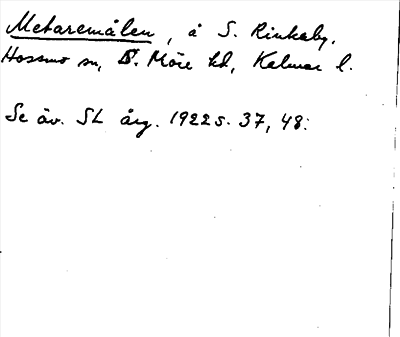 Metaremålen, å S. Rinkaby.
Hossmo sn, S. Möre hd, Kalmar l.
Se äv. SL årg. 1922 s. 37, 48.